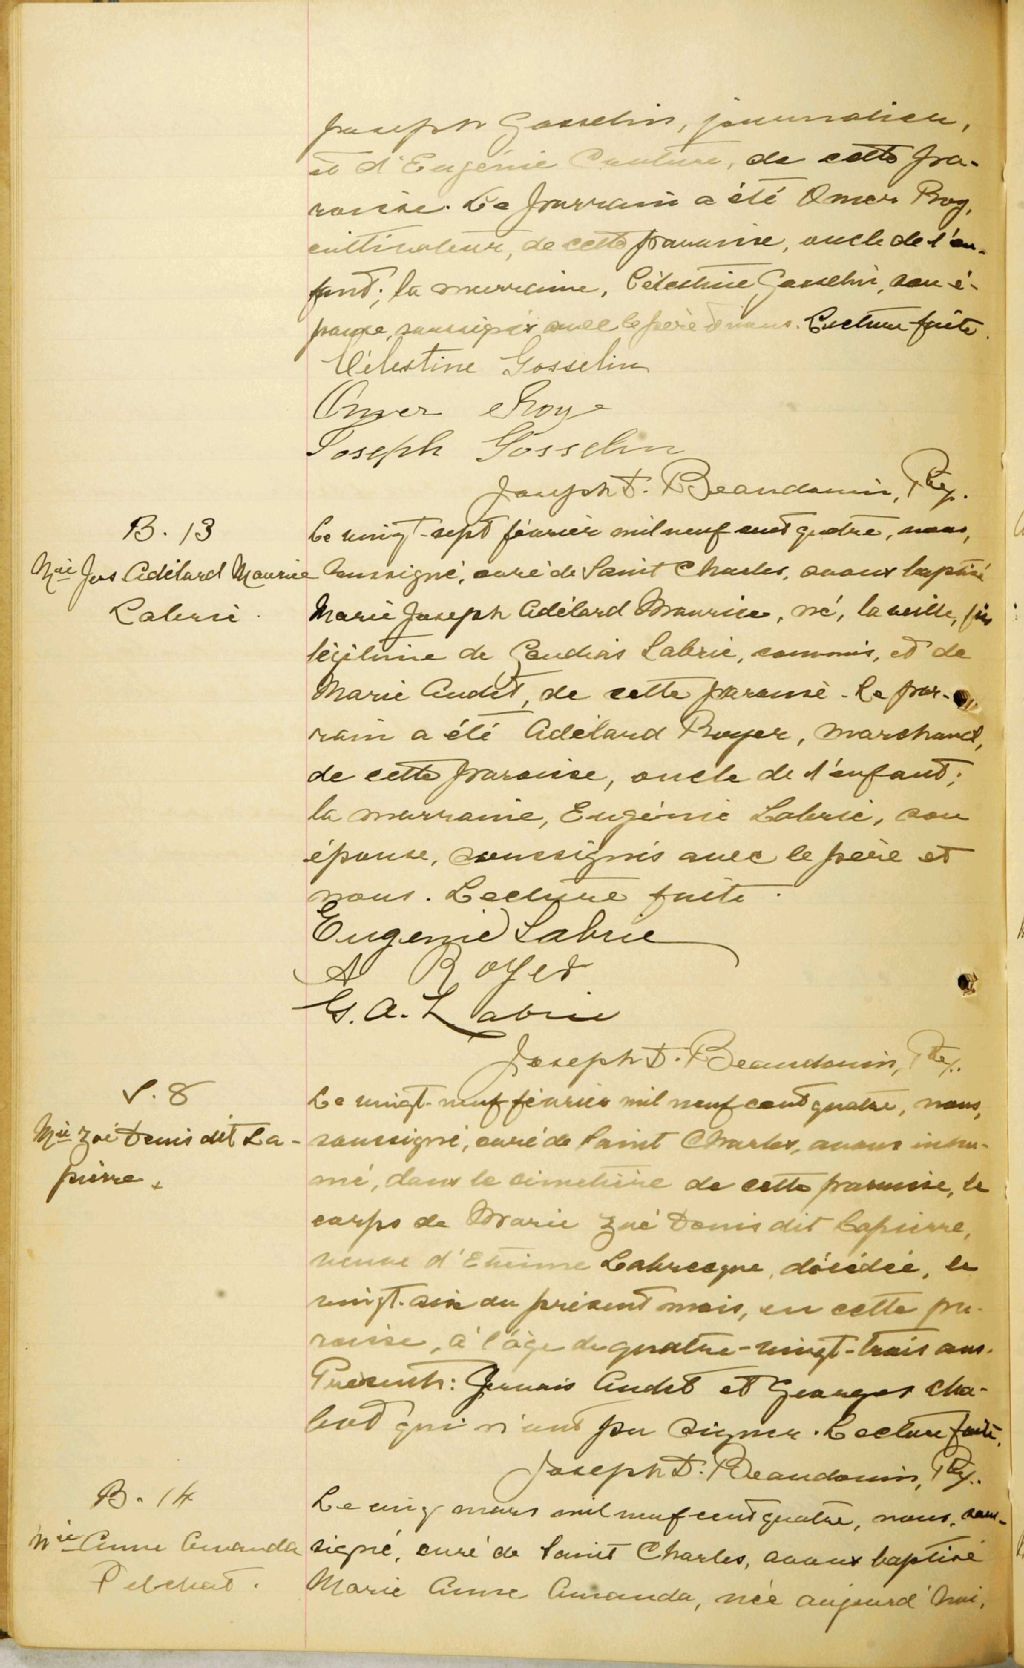 Joseph Gosselin, journalier,
et d'Eugénie Couture, de cette pa-
roisse. Le parrain a été Omer Roy,
cultivateur, de cette paroisse, oncle de l'en-
fant; la marraine, Célestine Gosselin, son é-
pouse, soussignés avec le père et nous. Lecture faite.
Célestine Gosselin
Omer Roy
Joseph Gosselin
Joseph D. Beaudouin, Ptre.
B. 13
Mie Jos Adélard Maurice
Labrie.
Le vingt-sept février mil neuf cent quatre, nous,
soussigné, curé de Saint Charles, avons baptisé
Marie Joseph Adélard Maurice, né, la veille, fils
légitime de Gaudias Labrie, commis, et de
Marie Audet, de cette paroisse. Le par-
rain a été Adélard Royer, marchand,
de cette paroisse, oncle de l'enfant;
la marraine, Eugénie Labrie, son
épouse, soussignés avec le père et
nous. Lecture faite.
Eugenie Labrie
A Royer
G. A. Labrie
Joseph D. Beaudouin, Ptre.
S. 8
Mie Zoé Denis dit La-
pierre.
Le vingt-neuf février mil neuf cent quatre, nous,
soussigné, curé de Saint Charles, avons inhu-
mé, dans le cimetière de cette paroisse, le
corps de Marie Zoé Denis dit Lapierre,
veuve d'Etienne Labrecque, décédée, le
vingt-six du présent mois, en cette pa-
roisse, à l'âge de quatre-vingt-trois ans.
Présents: Gervais Audet et Georges Cha-
bot qui n'ont pu signer. Lecture faite.
Joseph D. Beaudouin, Ptre.
B. 14
Mie Anne Amanda
Pelchat.
Le cinq mars mil neuf cent quatre, nous, sous-
signé, curé de Saint Charles, avons baptisé
Marie Anne Amanda, née aujourd'hui,